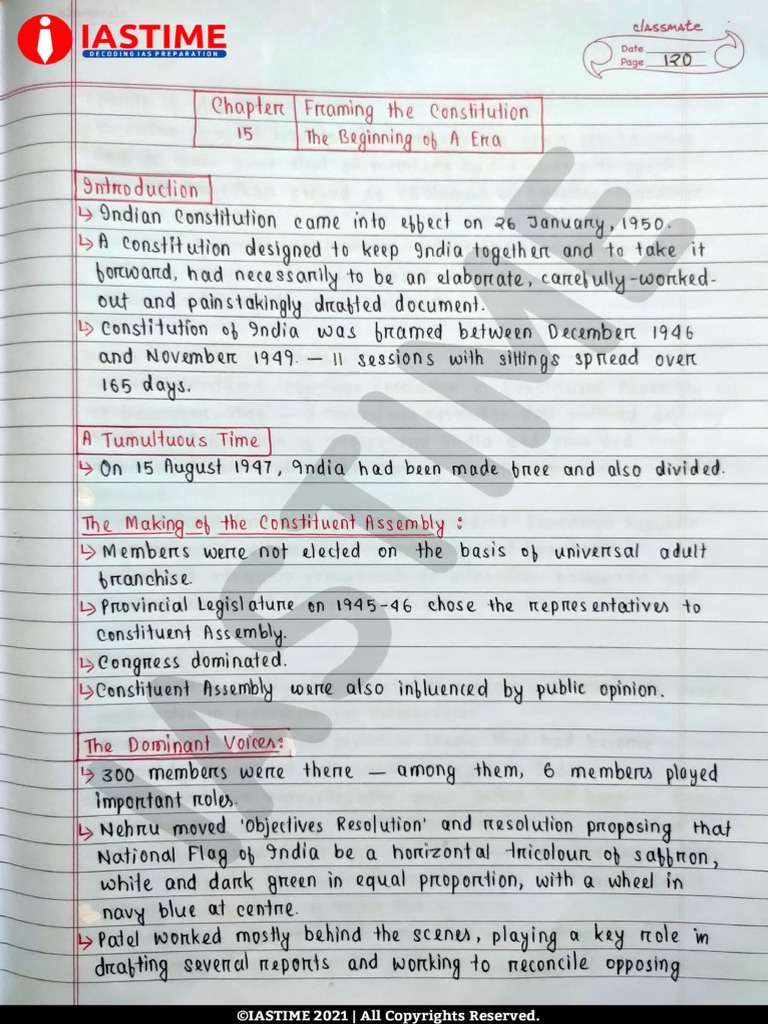 IASTIME
DECODING IAS PREPARATION
classmate
Date
Page 120
Chapter 15
Framing the Constitution
The Beginning of A Era
Introduction
↳ Indian Constitution came into effect on 26 January, 1950.
↳ A Constitution designed to keep India together and to take it
forward, had necessarily to be an elaborate, carefully-worked-
out and painstakingly drafted document.
↳ Constitution of India was framed between December 1946
and November 1949. – 11 sessions with sittings spread over
165 days.
A Tumultuous Time
↳ On 15 August 1947, India had been made free and also divided.
The Making of the Constituent Assembly :
↳ Members were not elected on the basis of universal adult
franchise.
↳ Provincial Legislature on 1945-46 chose the representatives to
Constituent Assembly.
↳ Congress dominated.
↳ Constituent Assembly were also influenced by public opinion.
The Dominant Voices:
↳ 300 members were there – among them, 6 members played
important roles.
↳ Nehru moved 'Objectives Resolution' and resolution proposing that
National Flag of India be a horizontal tricolour of saffron,
white and dark green in equal proportion, with a wheel in
navy blue at centre.
↳ Patel worked mostly behind the scenes, playing a key role in
drafting several reports and working to reconcile opposing
IASTIME
©IASTIME 2021 | All Copyrights Reserved.